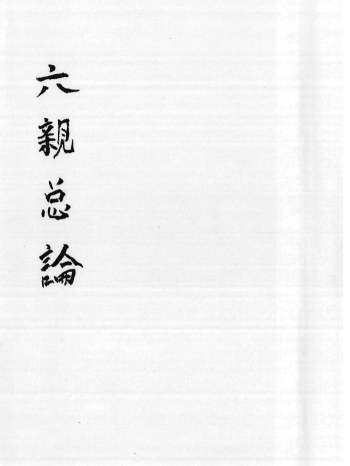 六親总論